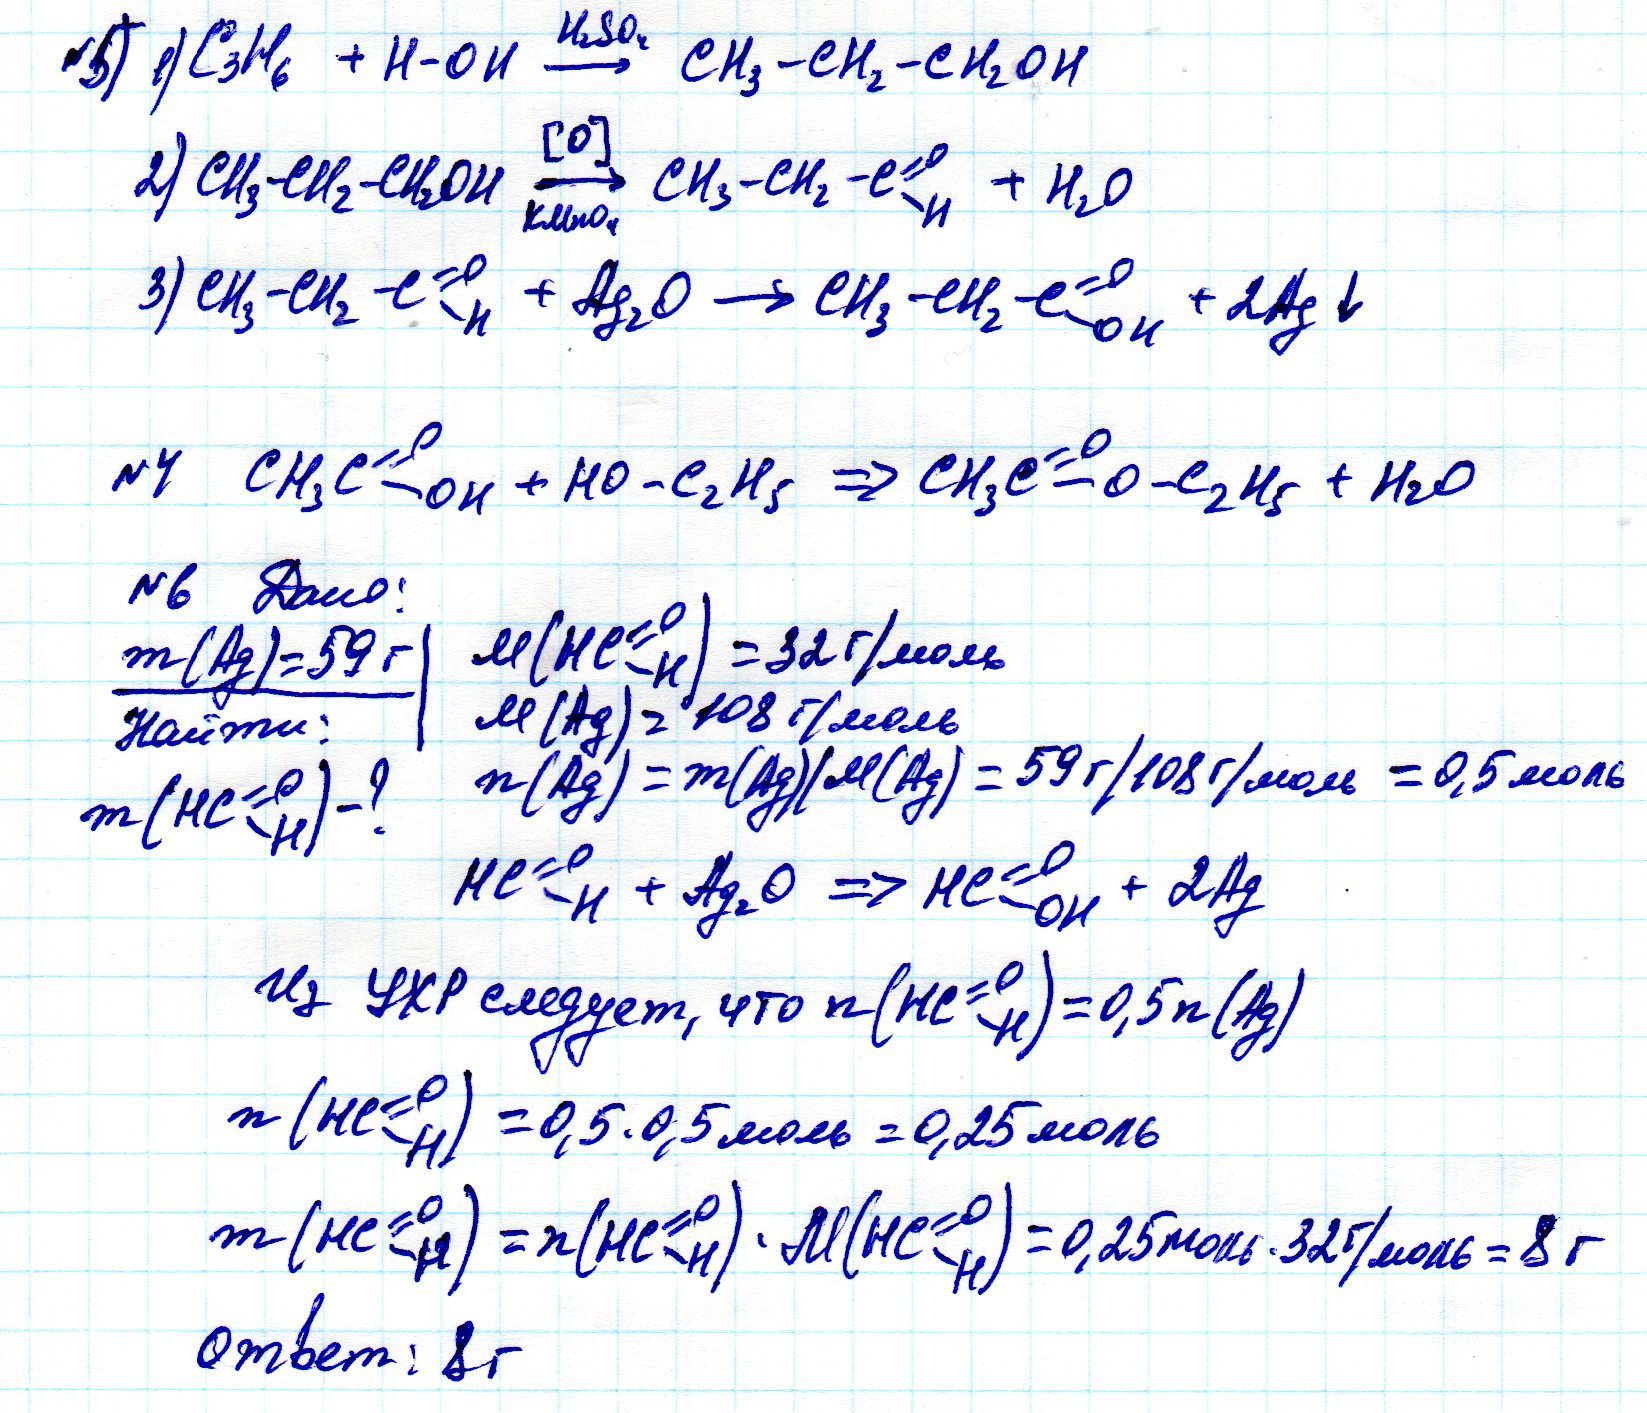 №5) 1) C₃H₆ + H-OH —H₂SO₄→ CH₃-CH₂-CH₂OH
2) CH₃-CH₂-CH₂OH —[O] KMnO₄→ CH₃-CH₂-C(=O)-H + H₂O
3) CH₃-CH₂-C(=O)-H + Ag₂O → CH₃-CH₂-C(=O)-OH + 2Ag↓
№4 CH₃C(=O)-OH + HO-C₂H₅ => CH₃C(=O)-O-C₂H₅ + H₂O
№6 Дано:
m(Ag)=59г
Найти:
m(HC(=O)-H)-?
M(HC(=O)-H) = 32 г/моль
M(Ag) = 108 г/моль
n(Ag) = m(Ag)/M(Ag) = 59г/108г/моль = 0,5 моль
HC(=O)-H + Ag₂O => HC(=O)-OH + 2Ag
Из УХР следует, что n(HC(=O)-H) = 0,5n(Ag)
n(HC(=O)-H) = 0,5·0,5моль = 0,25моль
m(HC(=O)-H) = n(HC(=O)-H)·M(HC(=O)-H) = 0,25моль·32г/моль = 8г
Ответ: 8г